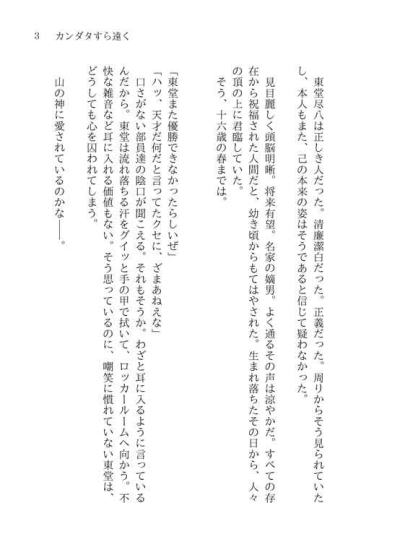 3　カンダタすら遠く
　東堂尽八は正しき人だった。清廉潔白だった。正義だった。周りからそう見られていた
し、本人もまた、己の本来の姿はそうであると信じて疑わなかった。
　見目麗しく頭脳明晰。将来有望。名家の嫡男。よく通るその声は涼やかだ。すべての存
在から祝福された人間だと、幼き頃からもてはやされた。生まれ落ちたその日から、人々
の頂の上に君臨していた。
　そう、十六歳の春までは。
「東堂また優勝できなかったらしいぜ」
「ハッ、天才だ何だと言ってたクセに、ざまあねえな」
　口さがない部員達の陰口が聞こえる。それもそうか。わざと耳に入るように言っている
んだから。東堂は流れ落ちる汗をグイッと手の甲で拭いて、ロッカールームへ向かう。不
快な雑音など耳に入れる価値もない。そう思っているのに、嘲笑に慣れていない東堂は、
どうしても心を囚われてしまう。
　山の神に愛されているのかな――。